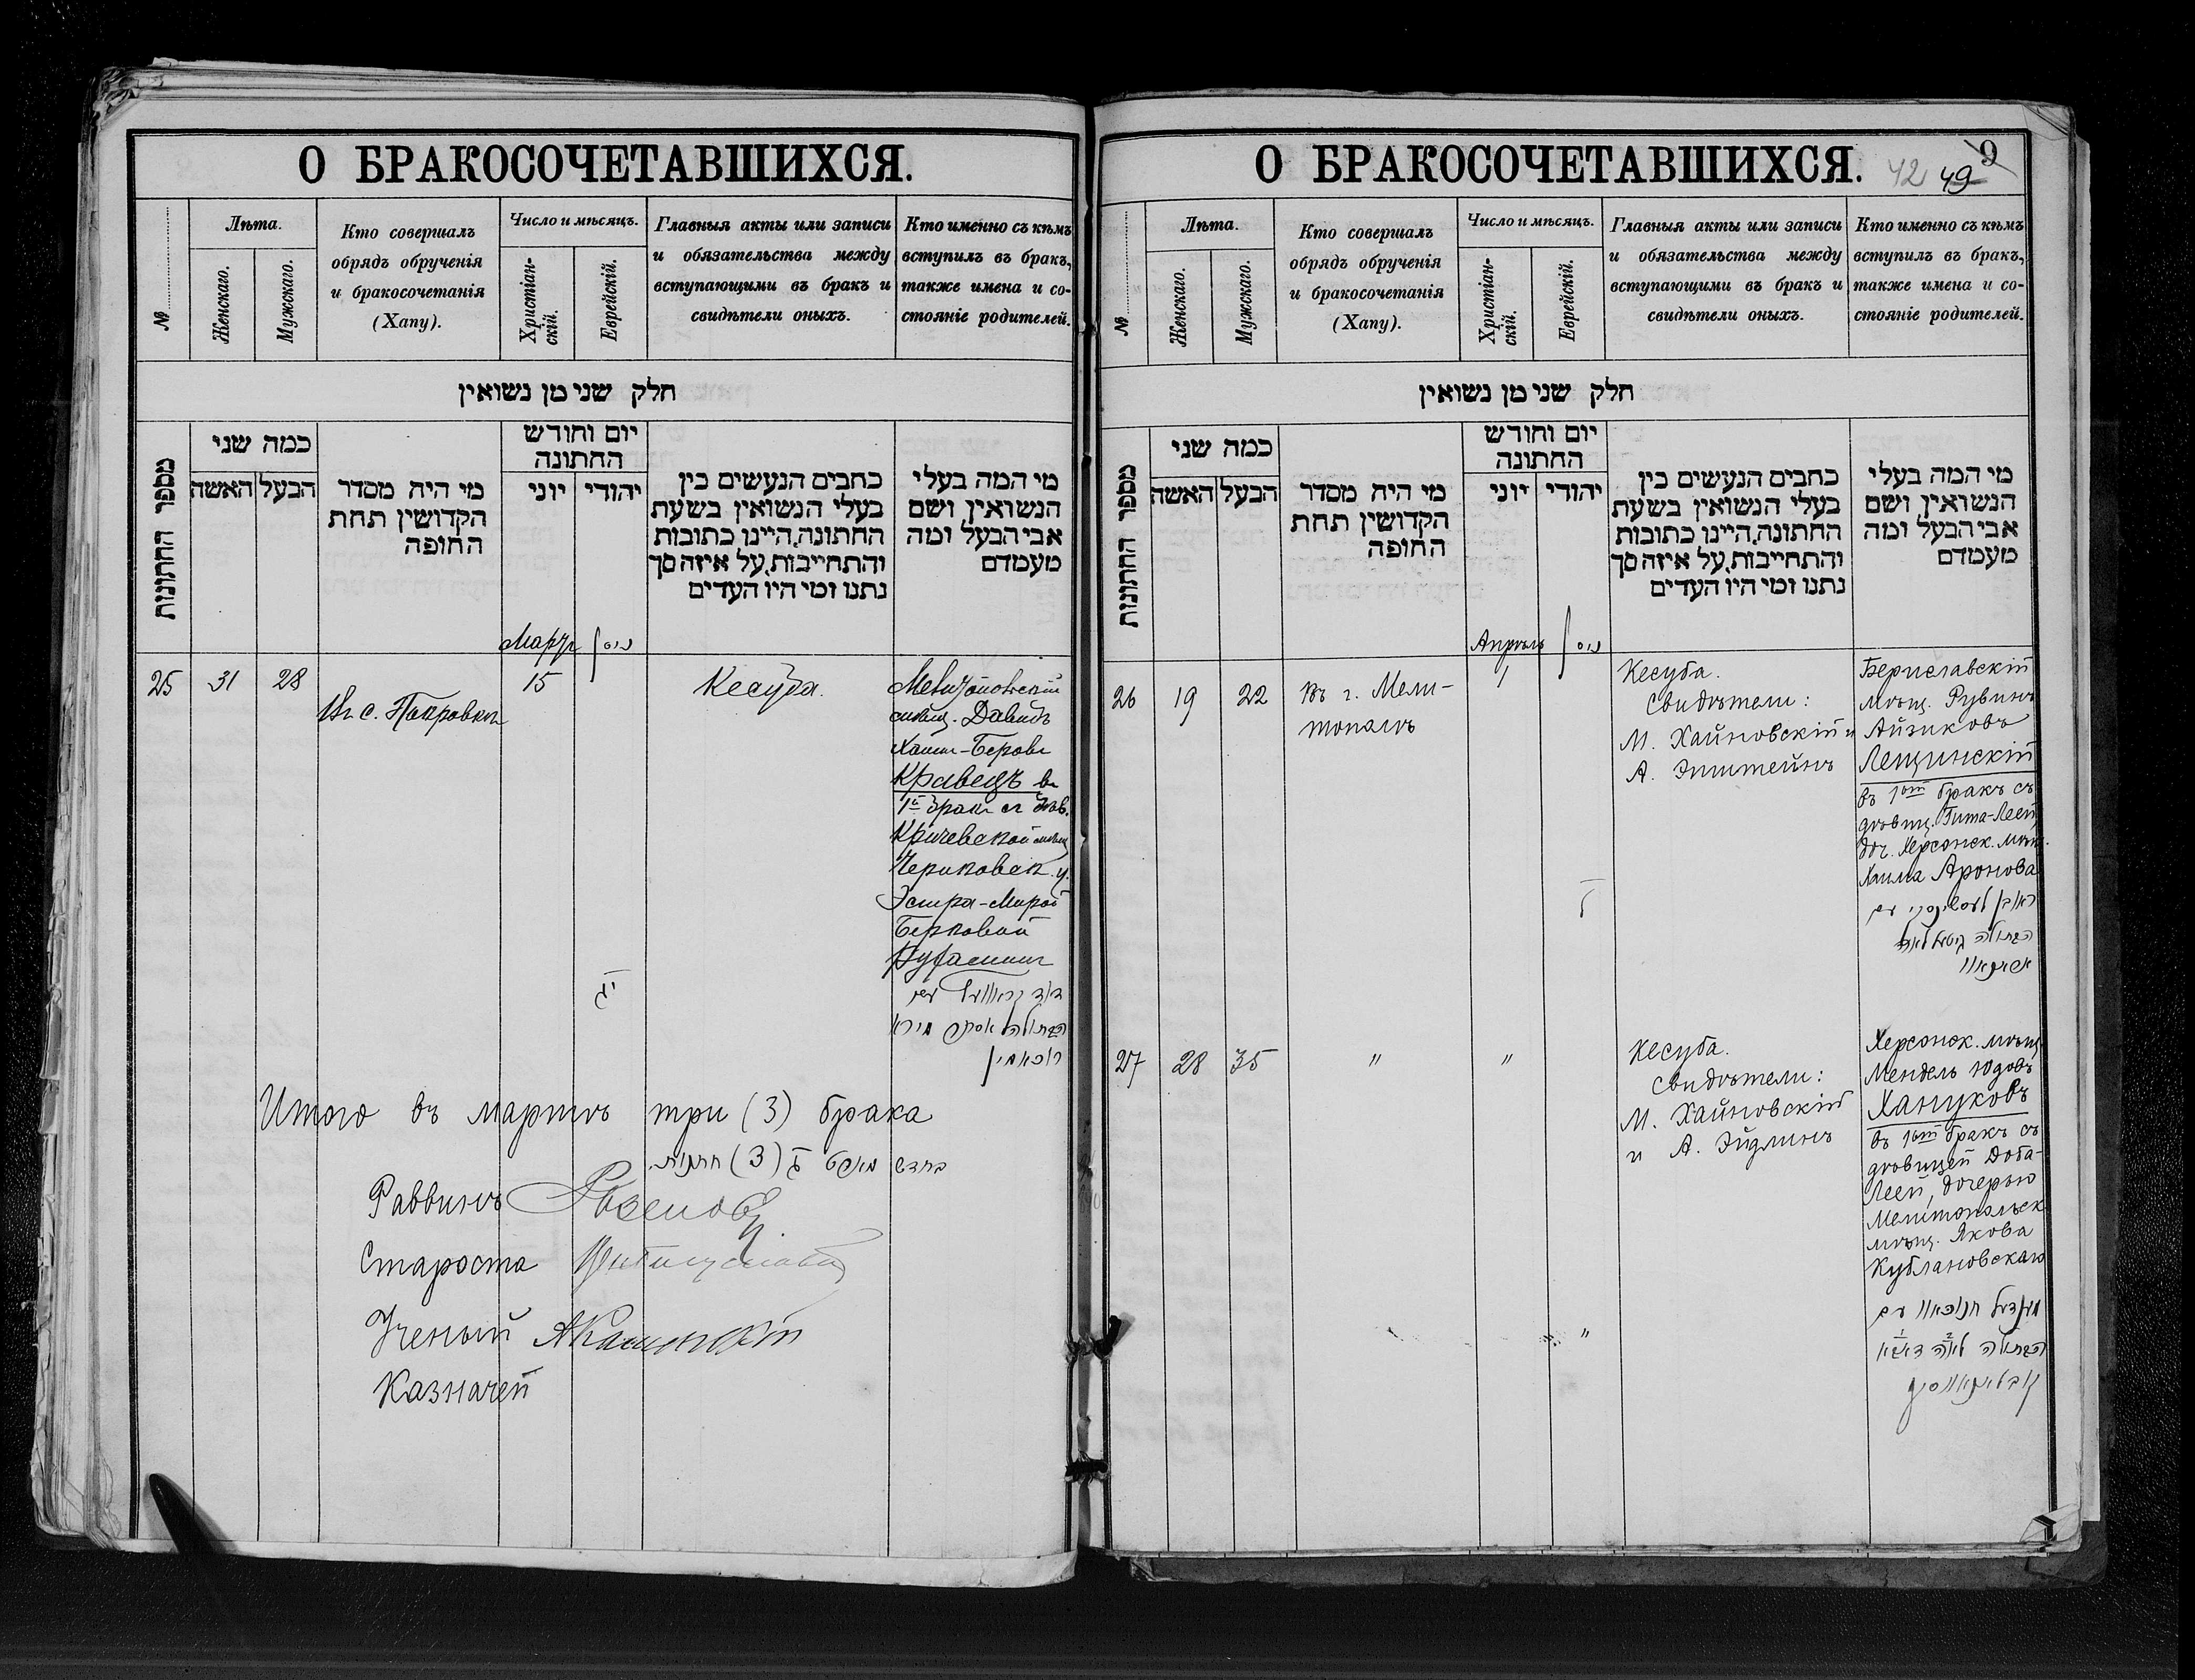 О БРАКОСОЧЕТАВШИХСЯ.
№
Лѣта.
Женскаго.
Мужскаго.
Кто совершалъ
обрядъ обрученія
и бракосочетанія
(Хапу).
Число и мѣсяцъ.
Христіан-
скій.
Еврейскій.
Главныя акты или записи
и обязательства между
вступающими въ бракъ и
свидѣтели оныхъ.
Кто именно съ кѣмъ
вступилъ въ бракъ,
также имена и со-
стояніе родителей.
חלק שני מן נשואין
מספר החתונות
כמה שני
האשה
הבעל
מי היה מסדר
הקדושין תחת
החופה
יום וחודש
החתונה
יוני
יהודי
כתבים הנעשים בין
בעלי הנשואין בשעת
החתונה, היינו כתובות
והתחייבות, על איזה סך
נתנו ומי היו העדים
מי המה בעלי
הנשואין ושם
אבי הבעל ומה
מעמדם
Мартъ
ניסן
25
31
28
Въ с. Покровкѣ
15
יג
Кесуба.
Мелитопольскій
мѣщ. Давидъ
Хаим-Беровъ
Кравецъ въ
1й бракъ съ дѣв.
Кричевской мѣщ
Чериковск. у.
Эстра-Мирой
Берковой
דוד קראוועץ עם
הבתולה אסתר מירא
Итого въ мартѣ три (3) брака
בחדש מארט ג (3) חתונות.
Раввинъ
Староста
Ученый
Казначей
О БРАКОСОЧЕТАВШИХСЯ.
42 49 9
№
Лѣта.
Женскаго.
Мужскаго.
Кто совершалъ
обрядъ обрученія
и бракосочетанія
(Хапу).
Число и мѣсяцъ.
Христіан-
скій.
Еврейскій.
Главныя акты или записи
и обязательства между
вступающими въ бракъ и
свидѣтели оныхъ.
Кто именно съ кѣмъ
вступилъ въ бракъ,
также имена и со-
стояніе родителей.
חלק שני מן נשואין
מספר החתונות
כמה שני
האשה
הבעל
מי היה מסדר
הקדושין תחת
החופה
יום וחודש
החתונה
יוני
יהודי
כתבים הנעשים בין
בעלי הנשואין בשעת
החתונה, היינו כתובות
והתחייבות, על איזה סך
נתנו ומי היו העדים
מי המה בעלי
הנשואין ושם
אבי הבעל ומה
מעמדם
Апрѣль
ניסן
26
19
22
Въ г. Мели-
тополѣ
1
Кесуба.
Свидѣтели:
М. Хайновскій и
А. Эпштейнъ
Бериславскій
мѣщ. Рувинъ
Айзиковъ
Лещинскій
въ 1ой бракъ съ
дѣвиц. Гита-Леей
доч. Херсонск. мѣщ.
Хаима Аронова
ראובן לעשצינסקי עם
הבתולה גיטא לאה
אהרנאוו
27
28
35
"
"
"
Кесуба.
Свидѣтели:
М. Хайновскій
и А. Эйдлинъ
Херсонск. мѣщ
Мендель Юдовъ
Хануковъ
въ 1ой бракъ съ
дѣвицей Доба-
Леей, дочерью
Мелитопольск
мѣщ. Якова
Кублановскаго
מענדעל חנוכאוו עם
הבתולה לאה דאבא
קובלאנאווסקי